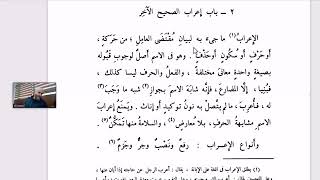 ٢ – باب إعراب الصحيح الآخر
الإعراب(١) ما جيء به لبيان مُقْتَضَى العامِلِ، مِن حَرَكَةٍ،
أو حَرْفٍ أو سُكُونٍ أو حَذْفٍ. وهو في الاسم أصلٌ لوجوبِ قَبُولِه
بصيغةٍ واحدةٍ معانِيَ مختلفةً، والفعلُ والحرفُ ليسا كذلك،
إلا المضارعَ، فإنه شابَهَ الاسمَ بجوازِ شبهِ ما وَجَبَ
، فأُعرِبَ، ما لم يتَّصل به نون توكيدٍ أو إناث. ويَمْنَعُ إعرابَ
الاسمِ مشابهةُ الحرفِ، بلا مُعارِضٍ، والسلامةُ منها تمكُّنٌ
وأنواعُ الإعراب: رفعٌ ونَصْبٌ وجَرٌّ وجَزْمٌ
(١) يطلق الإعراب في اللغة على الإبانة، يقال: أعرب الرجل عن حاجته إذا أبان عنها،